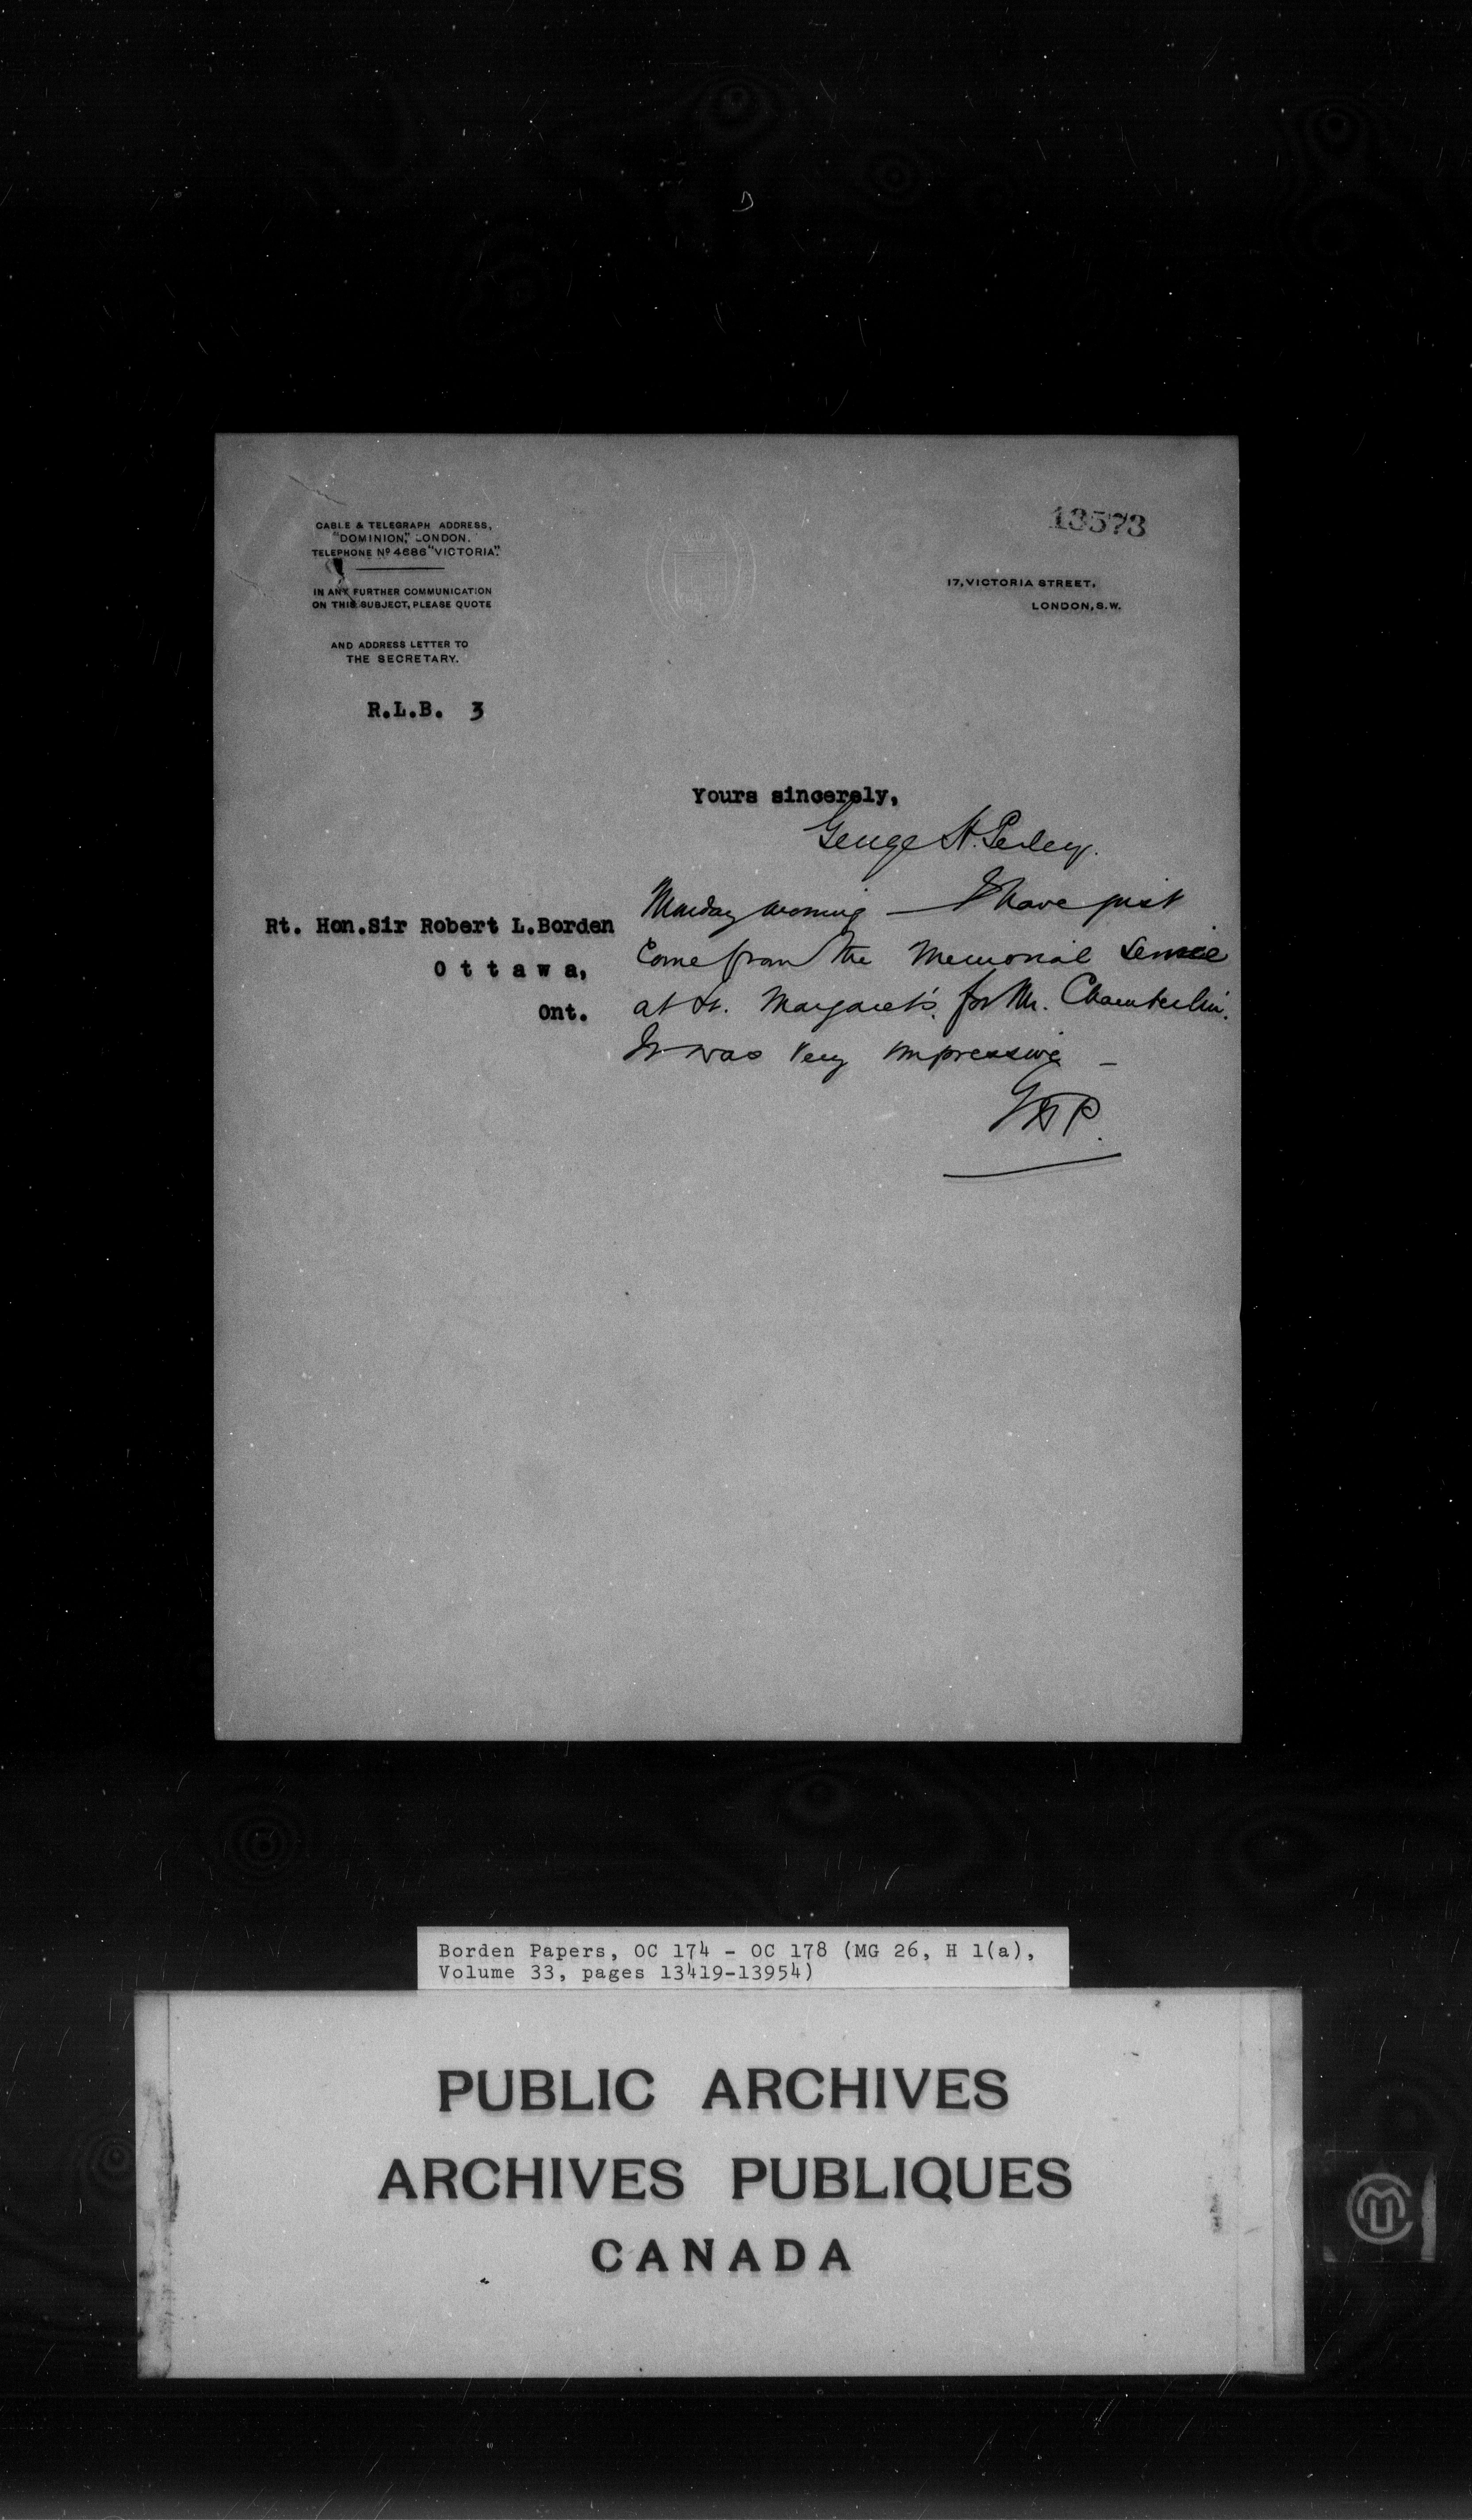 13573
CABLE & TELEGRAPH ADDRESS,
"DOMINION," LONDON.
TELEPHONE Nº 4686 "VICTORIA".
IN ANY FURTHER COMMUNICATION
ON THIS SUBJECT, PLEASE QUOTE
AND ADDRESS LETTER TO
THE SECRETARY.
17, VICTORIA STREET,
LONDON, S.W.
R.L.B. 3
Yours sincerely,
George H. Perley.
Rt. Hon. Sir Robert L. Borden
Ottawa,
Ont.
Monday morning — I have just
come from the Memorial Service
at St. Margaret's for Mr. Chamberlin.
It was very impressive —
GHP.
Borden Papers, OC 174 - OC 178 (MG 26, H 1(a),
Volume 33, pages 13419-13954)
PUBLIC ARCHIVES
ARCHIVES PUBLIQUES
CANADA